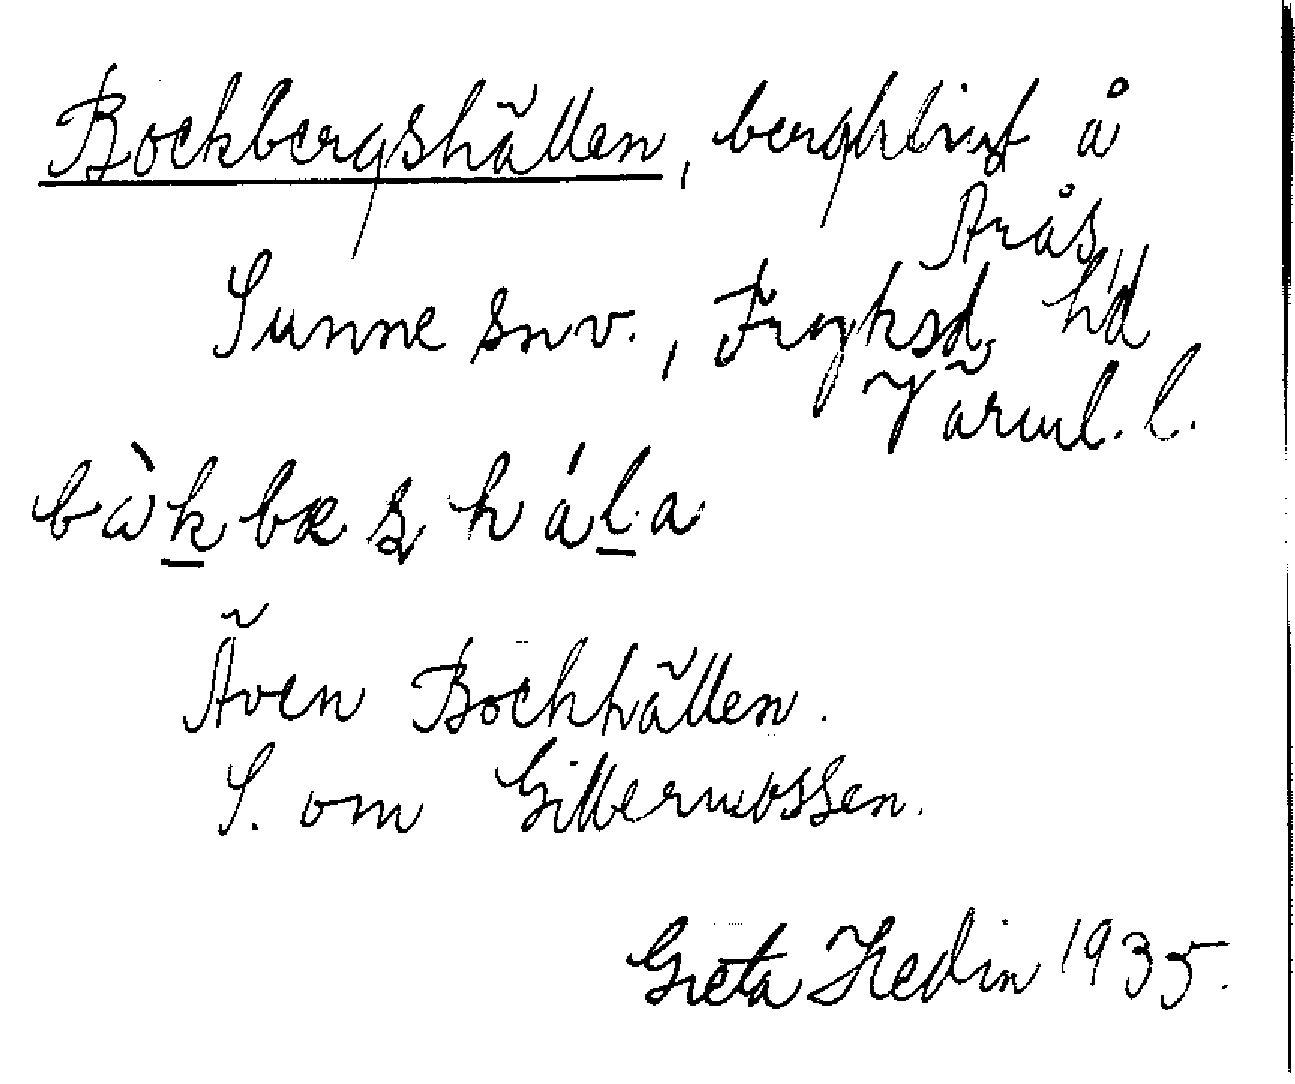 Bockbergshällen, bergklint å
Arås,
Sunne snv., Fryksd. hd
Värml. l.
bàkbæʂhála
Även Bockhällen.
S. om Gillermossen.
Greta Hedin 1935.